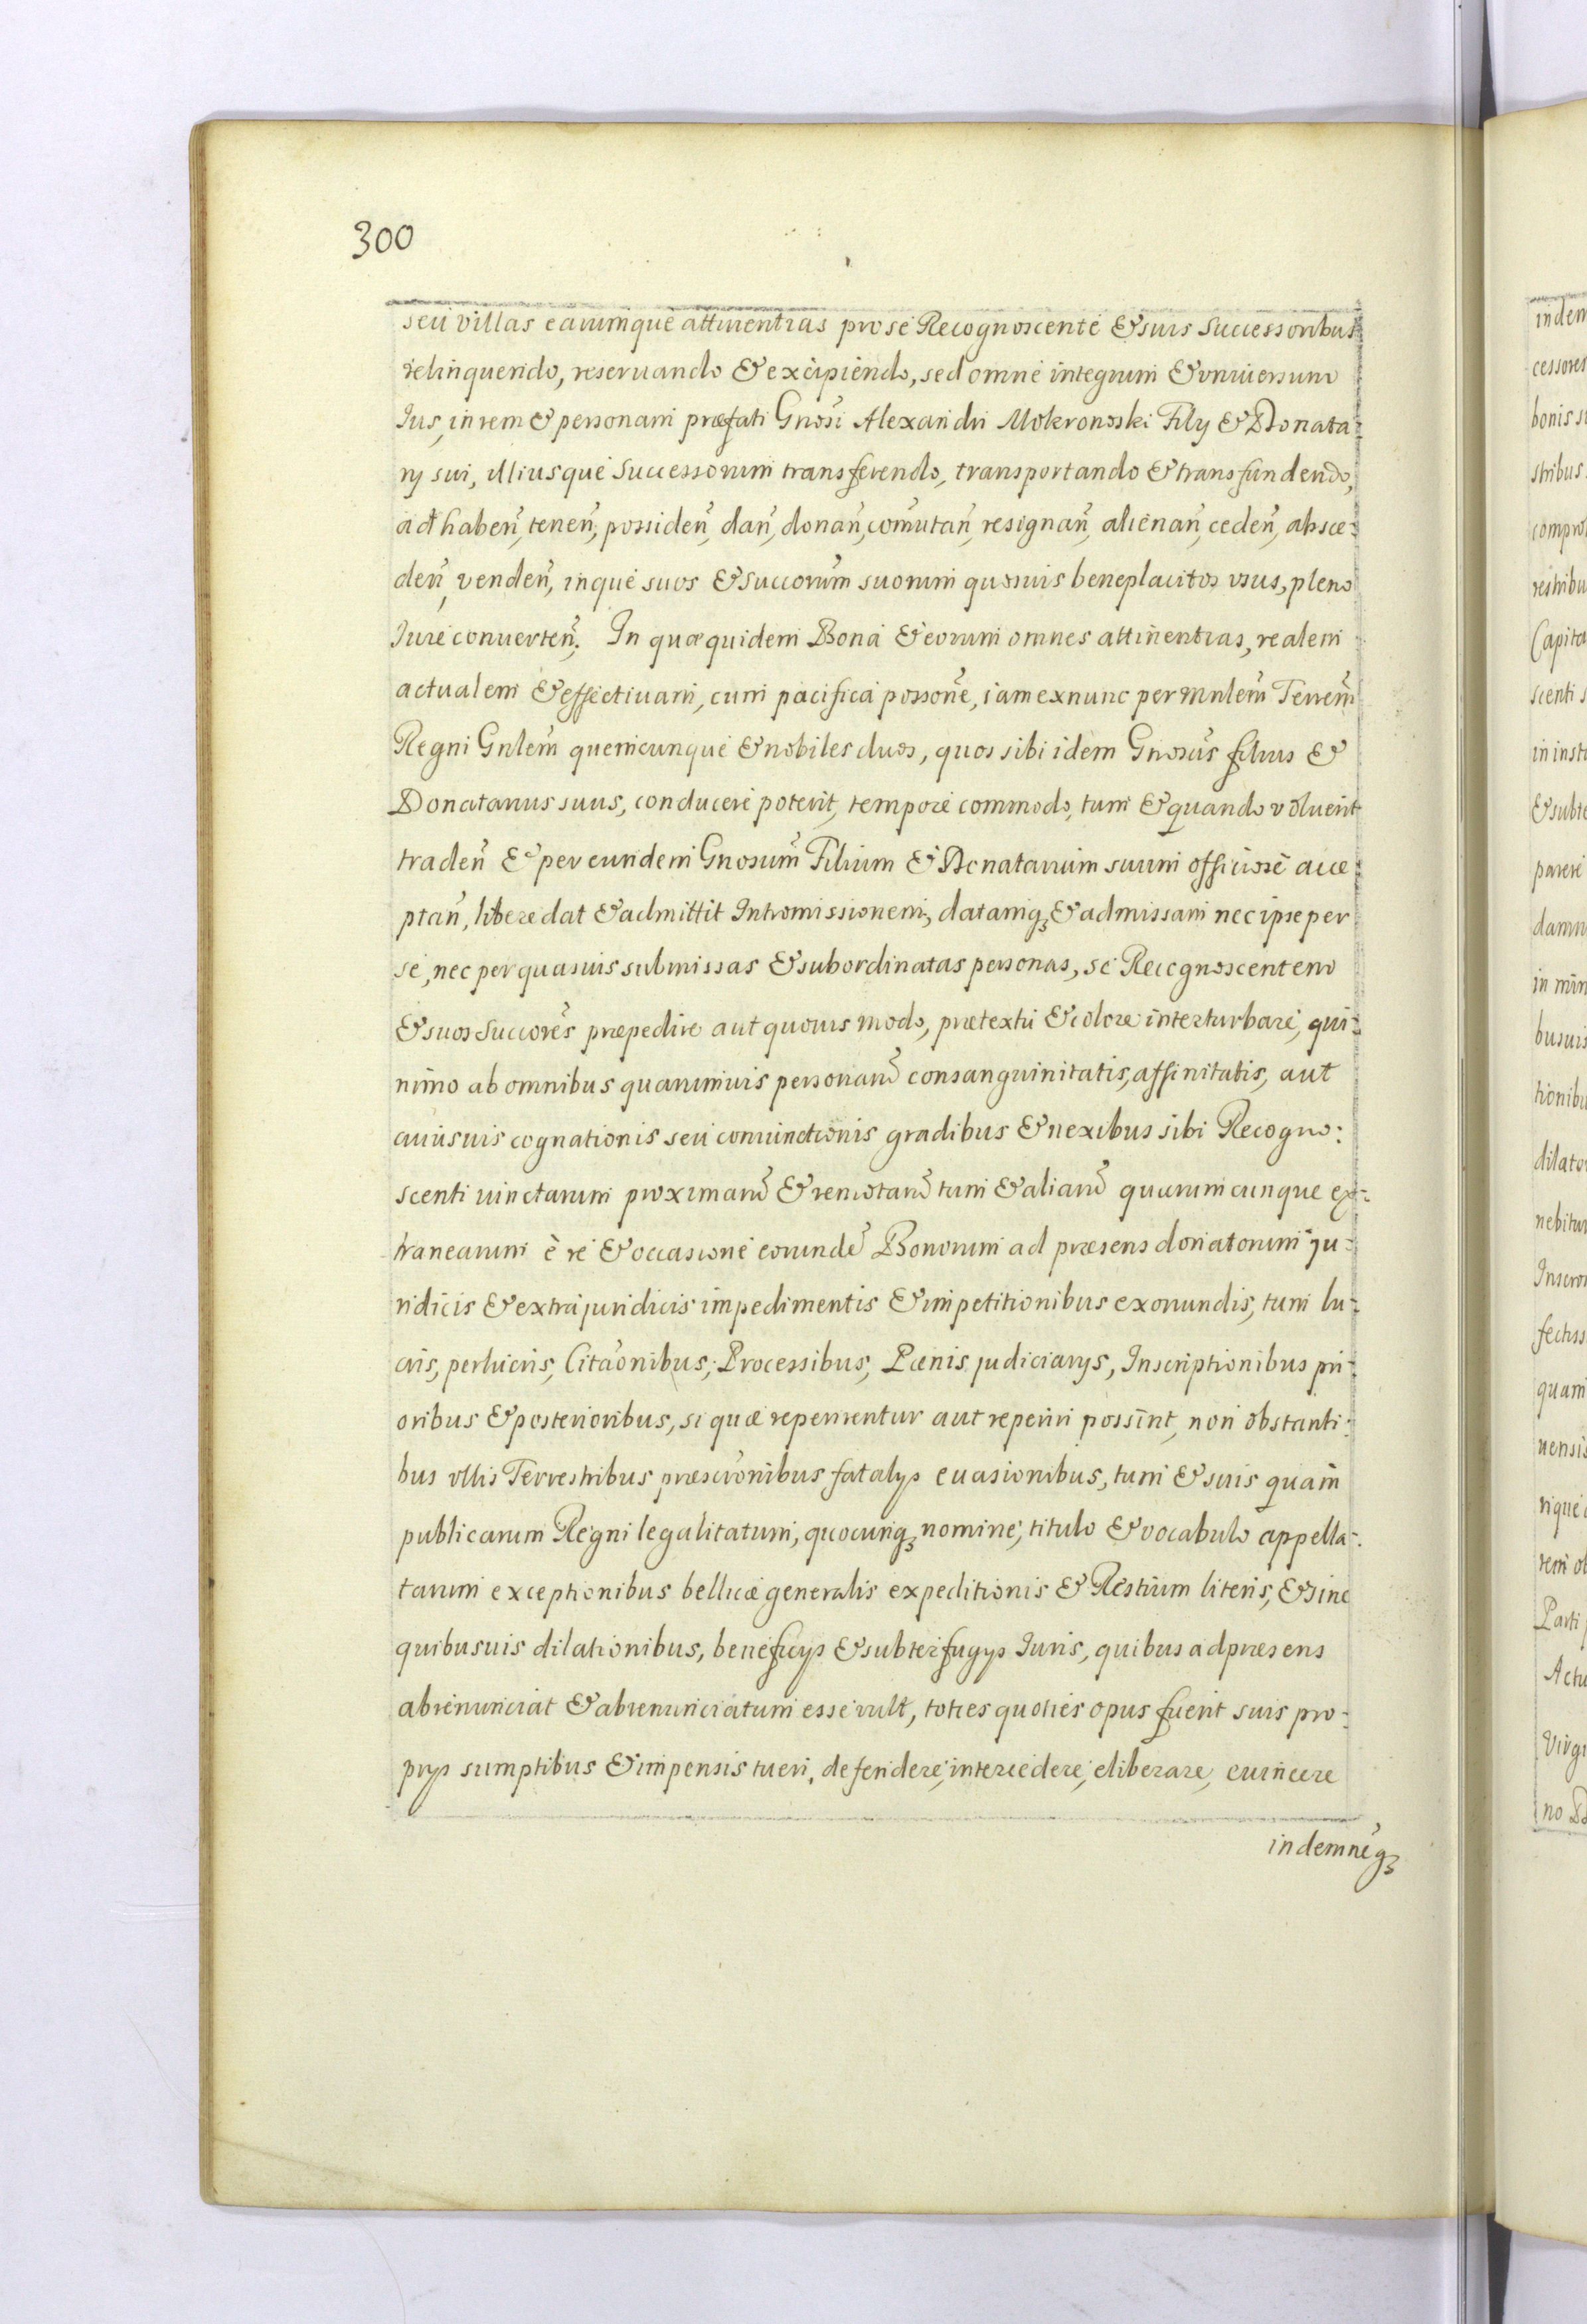 300
seu villas earumque attinentias pro se Recognoscente & suis Successoribus
relinquendo, reservando & excipiendo, sed omne integrum & vniuersum
Ius, in rem & personam præfati Gnosi Alexandri Mokronoski Filij & Donata:
rij sui, illiusque Successorum transferendo, transportando & transfundendo,
ad haben̄, tenen̄, possiden̄, dan̄, donan̄, com̄utan̄, resignan̄, alienan̄, ceden̄, absce:
den̄, venden̄, inque suos & Succorum̄ suorum quosuis beneplacitos vsus, pleno
Iure conuerten̄. In quæquidem Bona & eorum omnes attinentias, realem
actualem & effectiuam, cum pacifica posson̄e, iam ex nunc per Mnlem̄ Terrem̄
Regni Gnlem̄ quemcunque & nobiles duos, quos sibi idem Gnosus̄ filius &
Donatarius suus, conducere poterit, tempore commodo, tum & quando voluerit
traden̄ & per eundem Gnosum̄ Filium & Donatarium suum officiose acce:
ptan̄, libere dat & admittit Intromissionem, datamq₃ & admissam nec ipse per
se, nec per quasuis submissas & subordinatas personas, se Recognoscentem
& suos Succores̄ præpedire aut quouis modo, prætextu & colore interturbare, qui:
nimo ab omnibus quarumuis personarū consanguinitatis, affinitatis, aut
cuiusuis cognationis seu coniunctionis gradibus & nexibus sibi Recogno:
scenti uinctarum proximarū & remotarū tum & aliarū quarumcunque ex:
tranearum è re & occasione eorundē Bonorum ad præsens donatorum ju:
ridicis & extrajuridicis impedimentis & impetitionibus exoriundis, tum lu:
cris, perlucris, Citaōnibus, Processibus, Pœnis judiciarijs, Inscriptionibus pri:
oribus & posterioribus, si quæ reperirentur aut reperiri possint, non obstanti:
bus vllis Terrestribus præscrōnibus fatalijs euasionibus, tum & suis quam
publicarum Regni legalitatum, quocunq₃ nomine, titulo & vocabulo appella:
tarum exceptionibus bellicæ generalis expeditionis & Restium literis, & sine
quibusuis dilationibus, beneficijs & subterfugijs Iuris, quibus ad præsens
abrenunciat & abrenunciatum esse vult, toties quoties opus fuerit suis pro:
prijs sumptibus & impensis tueri, defendere, intercedere, eliberare, euincere
indemnēq₃